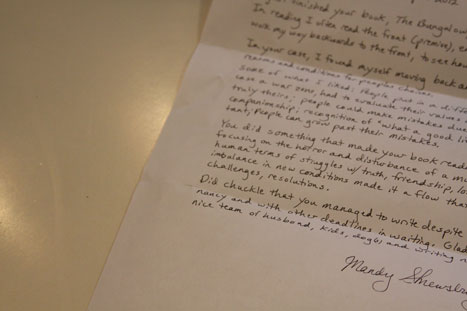 finished your book, The Bungalow
In reading I often read the front (premire), e
work my way backwards to the front, to see how
In your case, I found myself moving back an
reasons and conditions for peoples choices.
Some of what I liked: People plus in a diffe
case a war zone, had to evaluate their values
truly theirs; people could make mistakes due
companionship; recognition of "what a good li
tant; People can grow past their mistakes.
You did something that made your book read
focusing on the horror and disturbance of a mu
human terms of struggles w/truth, friendship, lo
imbalance in new conditions made it a flow tha
challenges, resolutions.
Did chuckle that you managed to write despite
nancy and with other deadlines in waiting. Glad
nice team of husband, kids, dog(s) and writing
Mandy